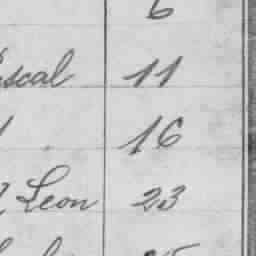 6
scal 11
16
Leon 23